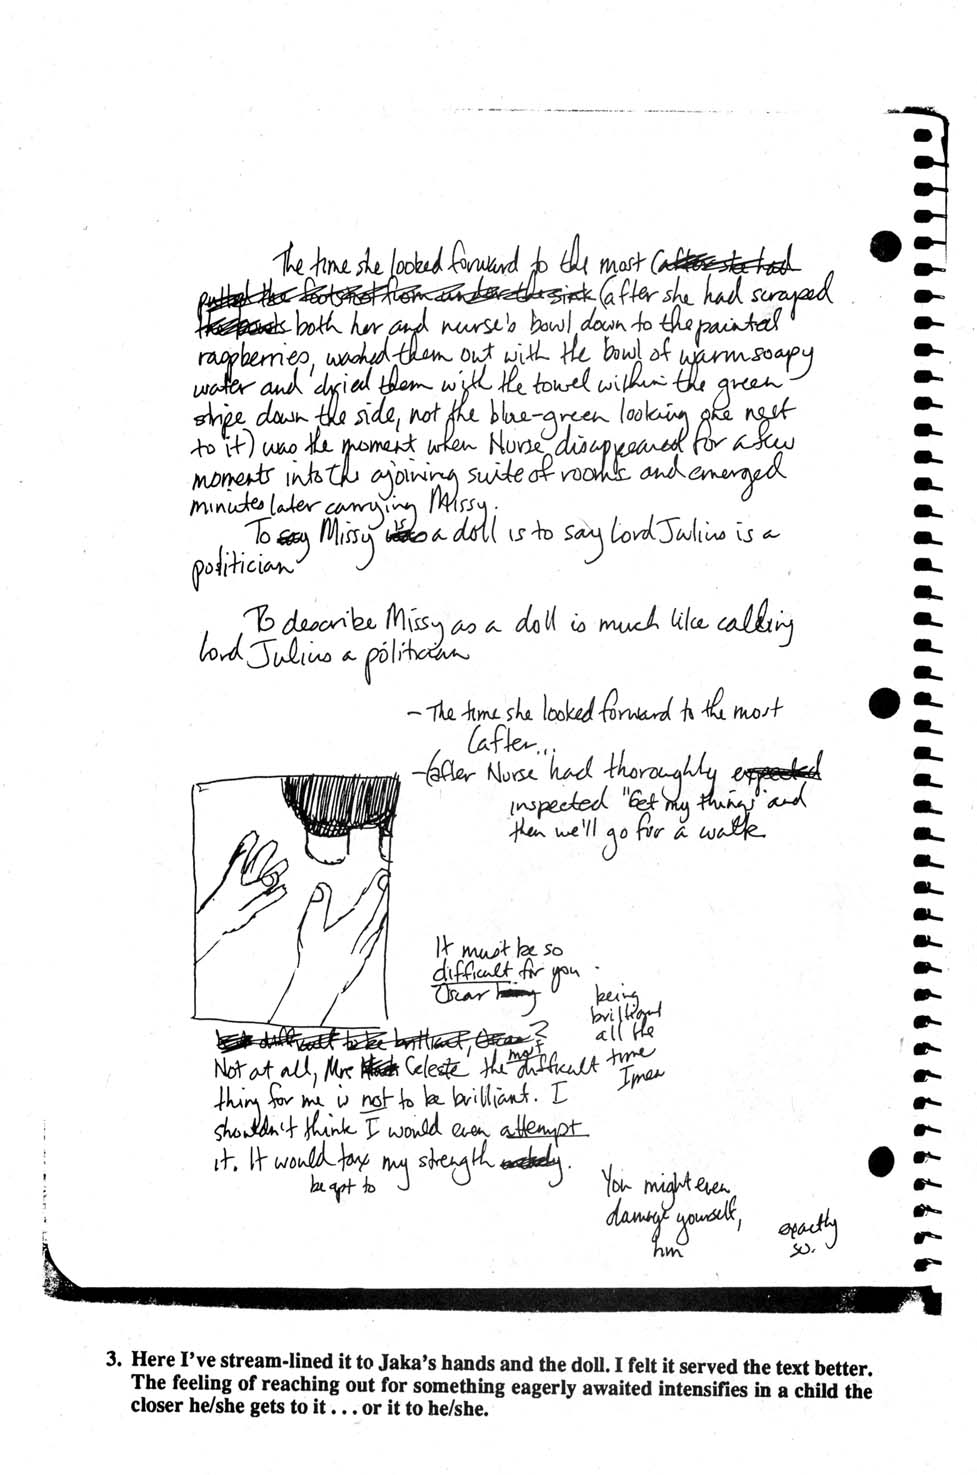 The time she looked forward to the most (after she had
putted the footstool from under the sink (after she had scraped
the bowls both her and nurse's bowl down to the painted
raspberries, washed them out with the bowl of warm soapy
water and dried them with the towel with in the green
stripe down the side, not the blue-green looking one next
to it) was the moment when Nurse disappeared for a few
moments into the ajoining suite of rooms and emerged
minutes later carrying Missy.
To say Missy is a doll is to say Lord Julius is a
politician
To describe Missy as a doll is much like calling
Lord Julius a politician
- The time she looked forward to the most
(after...
- (after Nurse had thoroughly expected
inspected "Get my things" and
then we'll go for a walk
It must be so
difficult for you
Oscar being
being
brilliant
all the
time
I mean
difficult to be brilliant, Oscar?
Not at all, Mrs Celeste the most difficult
thing for me is not to be brilliant. I
shouldn't think I would even attempt
it. It would tax my strength
be apt to
You might even
damage yourself,
hm
exactly
so.
3. Here I've stream-lined it to Jaka's hands and the doll. I felt it served the text better.
The feeling of reaching out for something eagerly awaited intensifies in a child the
closer he/she gets to it . . . or it to he/she.